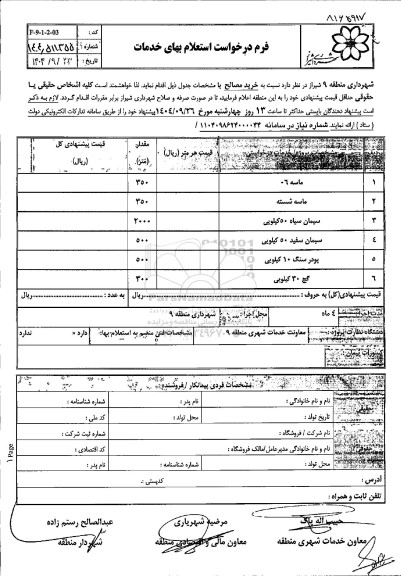 ۸۱۶۵۹۱۷
کد : F-9-1-2-03
شماره :
تاریخ : ۱۴۰۴/۹/۲۳
فرم درخواست استعلام بهای خدمات
شهرداری منطقه ۹ شیراز در نظر دارد نسبت به خرید مصالح با مشخصات جدول ذیل اقدام نماید. لذا خواهشمند است کلیه اشخاص حقیقی یا
حقوقی حداقل قیمت پیشنهادی خود را به این منطقه اعلام فرمایید، تا در صورت صرفه و صلاح شهرداری شیراز برابر مقررات اقدام گردد. لازم به ذکر
است پیشنهاد دهندگان بایستی حداکثر تا ساعت ۱۳ روز چهارشنبه مورخ ۱۴۰۴/۰۹/۲۶ پیشنهاد خود را از طریق سامانه تدارکات الکترونیکی دولت
( ستاد ) ارائه نمایند. شماره نیاز در سامانه ۱۱۰۴۰۹۸۶۲۴۰۰۰۰۳۴
قیمت هر متر (ریال) مقدار (متر) قیمت پیشنهادی کل (ریال)
۱ ماسه ۰۶ ۳۵۰
۲ ماسه شسته ۳۵۰
۳ سیمان سیاه ۵۰ کیلویی ۲۰۰۰
۴ سیمان سفید ۵۰ کیلویی ۵۰۰
۵ پودر سنگ ۱۰ کیلویی ۵۰۰
۶ گچ ۳۰ کیلویی ۳۰۰
قیمت پیشنهادی(کل) به حروف : ریال به عدد : ریال
۴ ماه محل اجرا: شهرداری منطقه ۹
دستگاه نظارت پروژه : معاونت خدمات شهری منطقه ۹ مشخصات فنی منضم به استعلام بها: دارد × ندارد
مشخصات فردی پیمانکار /فروشنده
نام و نام خانوادگی : نام پدر : شماره شناسنامه :
تاریخ تولد : محل تولد : کد ملی :
نام شرکت / فروشگاه : شماره ثبت شرکت :
نام و نام خانوادگی مدیرعامل/مالک فروشگاه : کد اقتصادی :
محل تولد : شماره شناسنامه : نام پدر :
آدرس : کدپستی :
تلفن ثابت و همراه :
حبیب اله پاک مرضیه شهریاری عبدالصالح رستم زاده
معاون خدمات شهری منطقه معاون مالی و اقتصادی منطقه شهردار منطقه
1 Page